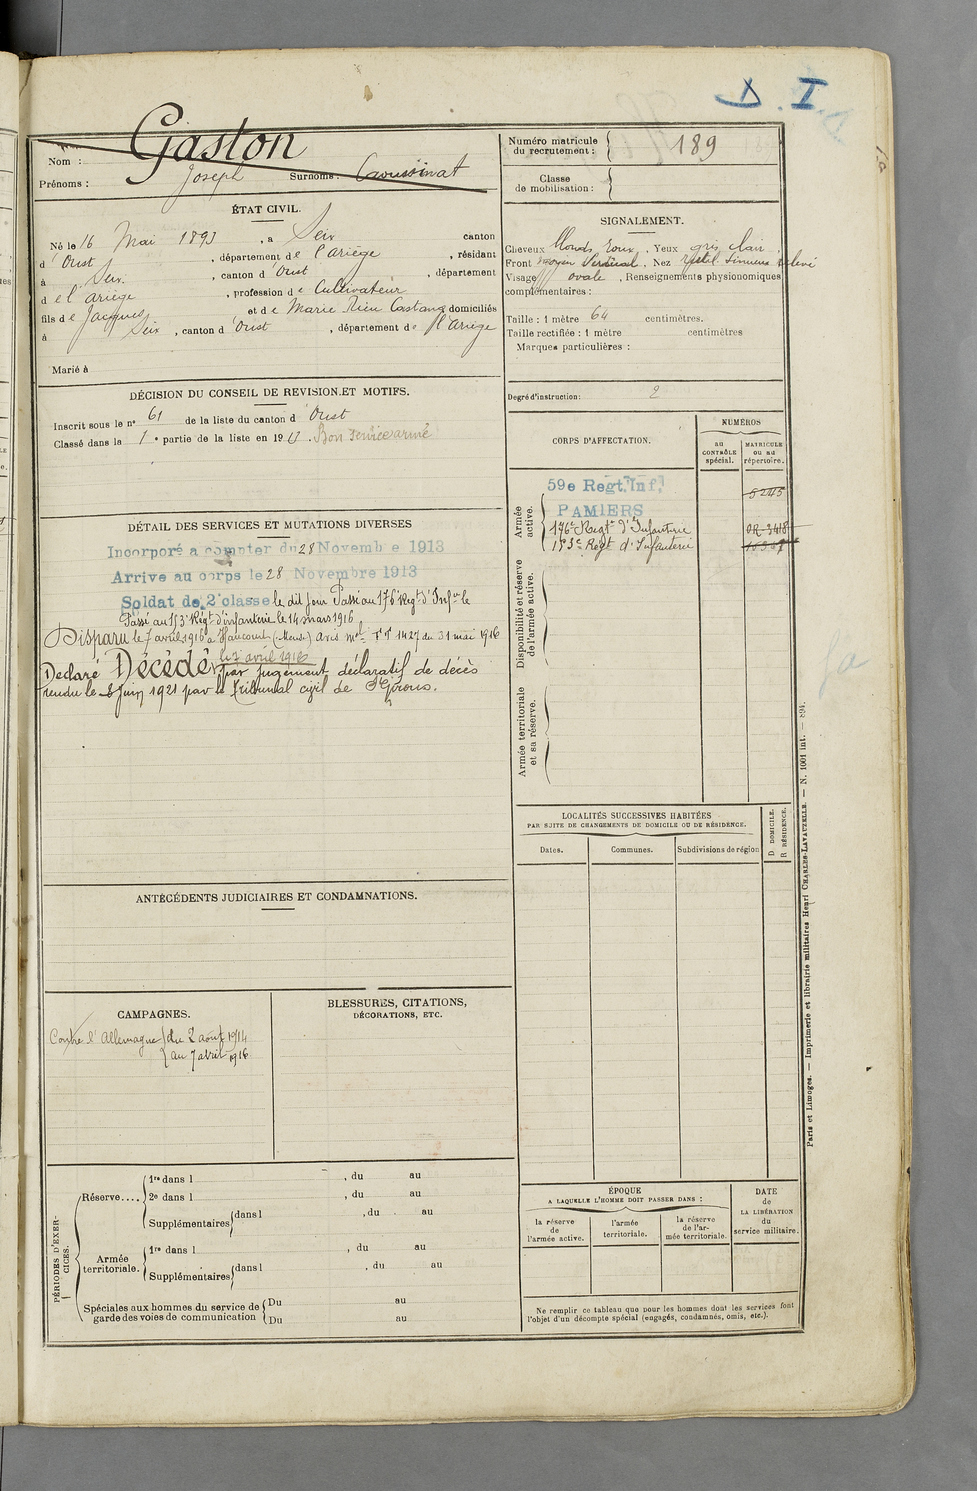 D. I.
Gaston
Nom :
Prénoms : Joseph Surnoms : Caoussinat
Numéro matricule du recrutement : 189
Classe de mobilisation :
ÉTAT CIVIL.
Né le 16 Mai 1893, à Seix canton
d'Oust, département de l'Ariège, résidant
à Seix, canton d'Oust, département
de l'Ariège, profession de Cultivateur
fils de Jacques et de Marie Rieu Castaing domiciliés
à Seix, canton d'Oust, département de l'Ariège
Marié à
SIGNALEMENT.
Cheveux blonds roux, Yeux gris clair
Front moyen Vertical, Nez Petit Sinueux relevé
Visage ovale, Renseignements physionomiques
complémentaires :
Taille : 1 mètre 64 centimètres.
Taille rectifiée : 1 mètre centimètres
Marques particulières :
Degré d'instruction : 2
DÉCISION DU CONSEIL DE REVISION ET MOTIFS.
Inscrit sous le n° 61 de la liste du canton d'Oust
Classé dans la 1e partie de la liste en 19 Bon service armé
DÉTAIL DES SERVICES ET MUTATIONS DIVERSES
Incorporé a compter du 28 Novembre 1913
Arrive au corps le 28 Novembre 1913
Soldat de 2e classe le dit jour Passé au 176e Régt d'Infie le
Passé au 153e Régt d'infanterie le 14 mars 1916
Disparu le 7 avril 1916 à Haucourt (Meuse) avis mel F.T 1427 du 31 mai 1916
le 7 avril 1916
Déclaré Décédé par jugement déclaratif de décès
rendu le 8 Juin 1921 par le Tribunal civil de St Girons.
CORPS D'AFFECTATION.
NUMÉROS
au CONTRÔLE spécial.
MATRICULE ou au répertoire.
Armée active.
59e Regt. Inf. 8245
PAMIERS
176e Régt d'Infanterie OR-3418
153e Régt d'Infanterie
Disponibilité et réserve de l'armée active.
Armée territoriale et sa réserve.
LOCALITÉS SUCCESSIVES HABITÉES
PAR SUITE DE CHANGEMENTS DE DOMICILE OU DE RÉSIDENCE.
Dates. Communes. Subdivisions de région D DOMICILE. R RÉSIDENCE.
ANTÉCÉDENTS JUDICIAIRES ET CONDAMNATIONS.
CAMPAGNES.
Contre l'Allemagne du 2 août 1914
au 7 avril 1916
BLESSURES, CITATIONS,
DÉCORATIONS, ETC.
PÉRIODES D'EXERCICES.
Réserve.... 1re dans l , du au
2e dans l , du au
Supplémentaires dans l , du au
Armée territoriale. 1re dans l , du au
Supplémentaires dans l , du au
Spéciales aux hommes du service de garde des voies de communication Du au
Du au
ÉPOQUE
A LAQUELLE L'HOMME DOIT PASSER DANS :
la réserve de l'armée active.
l'armée territoriale.
la réserve de l'armée territoriale.
DATE de LA LIBÉRATION du service militaire.
Ne remplir ce tableau que pour les hommes dont les services font
l'objet d'un décompte spécial (engagés, condamnés, omis, etc.).
Paris et Limoges. — Imprimerie et librairie militaires Henri CHARLES-LAVAUZELLE. — N. 1001 int. — 894.